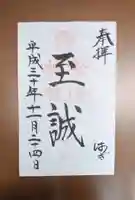 奉拝
至誠
平成三十年十二月二十四日